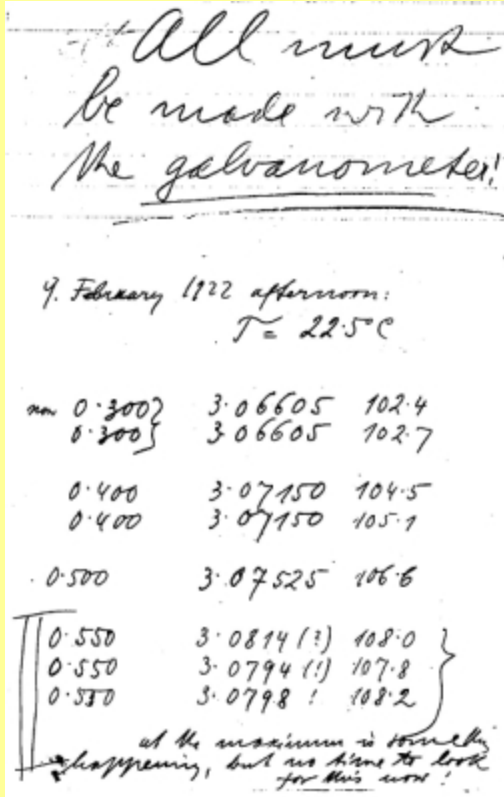 All must
be made with
the galvanometer!
9. February 1922 afternoon:
T = 22.5°C
0.300} 3.06605 102.4
0.300} 3.06605 102.7
0.400 3.07150 104.5
0.400 3.07150 105.1
0.500 3.07525 106.6
0.550 3.0814 (?) 108.0
0.550 3.0794 (!) 107.8
0.550 3.0798 ! 108.2
at the maximum is somethin
happening, but no time to look
for this now!